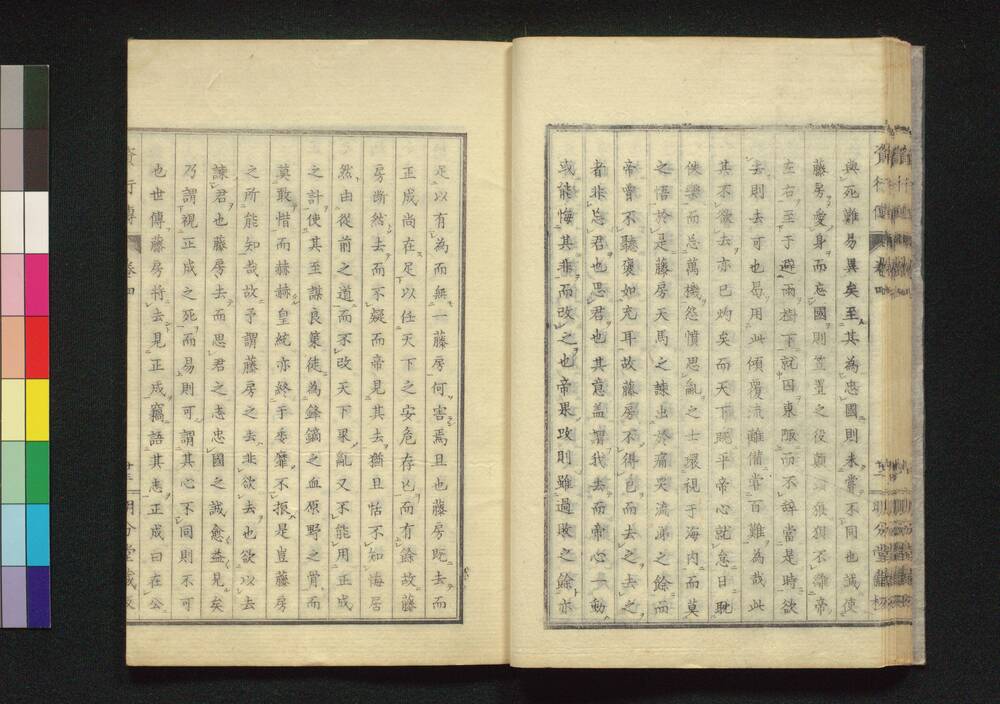 與死難易異矣至其為忠國則未嘗不同也誠使
藤房愛身而忘國則笠置之役顛沛狼狽不離帝
左右至于避雨樹下就囚東陬而不辭當是時欲
去則去可也曷用此傾覆流離備嘗百難為哉此
其不欲去亦已灼矣而天下既平帝心就怠日耽
佚樂而忘萬機怨憤思亂之士環視于海内而莫
之悟於是藤房天馬之諫出於痛哭流涕之餘而
帝曾不聽褎如充耳故藤房不得已而去之去之
者非忘君也思君也其意蓋謂我去而帝心一動
或能悔其非而改之也帝果改則雖過敗之餘亦
資行傳 卷四 明分堂藏板
足以有為而無一藤房何害焉且也藤房既去而
正成尚在足以任天下之安危存亡而有餘故藤
房斷然去而不疑而帝見其去猶且恬不知悔居
然由從前之道而不改天下果亂又不能用正成
之計使其至謀良策徒為鋒鏑之血原野之骨而
莫敢惜而赫赫皇統亦終于委靡不振是豈藤房
之所能知哉故予謂藤房之去非欲去也欲以去
諫君也藤房去而思君之志忠國之誠愈益見矣
乃謂視正成之死而易則可謂其心不同則不可
也世傳藤房将去見正成竊語其志正成曰在公
資行傳 卷四 明分堂藏板